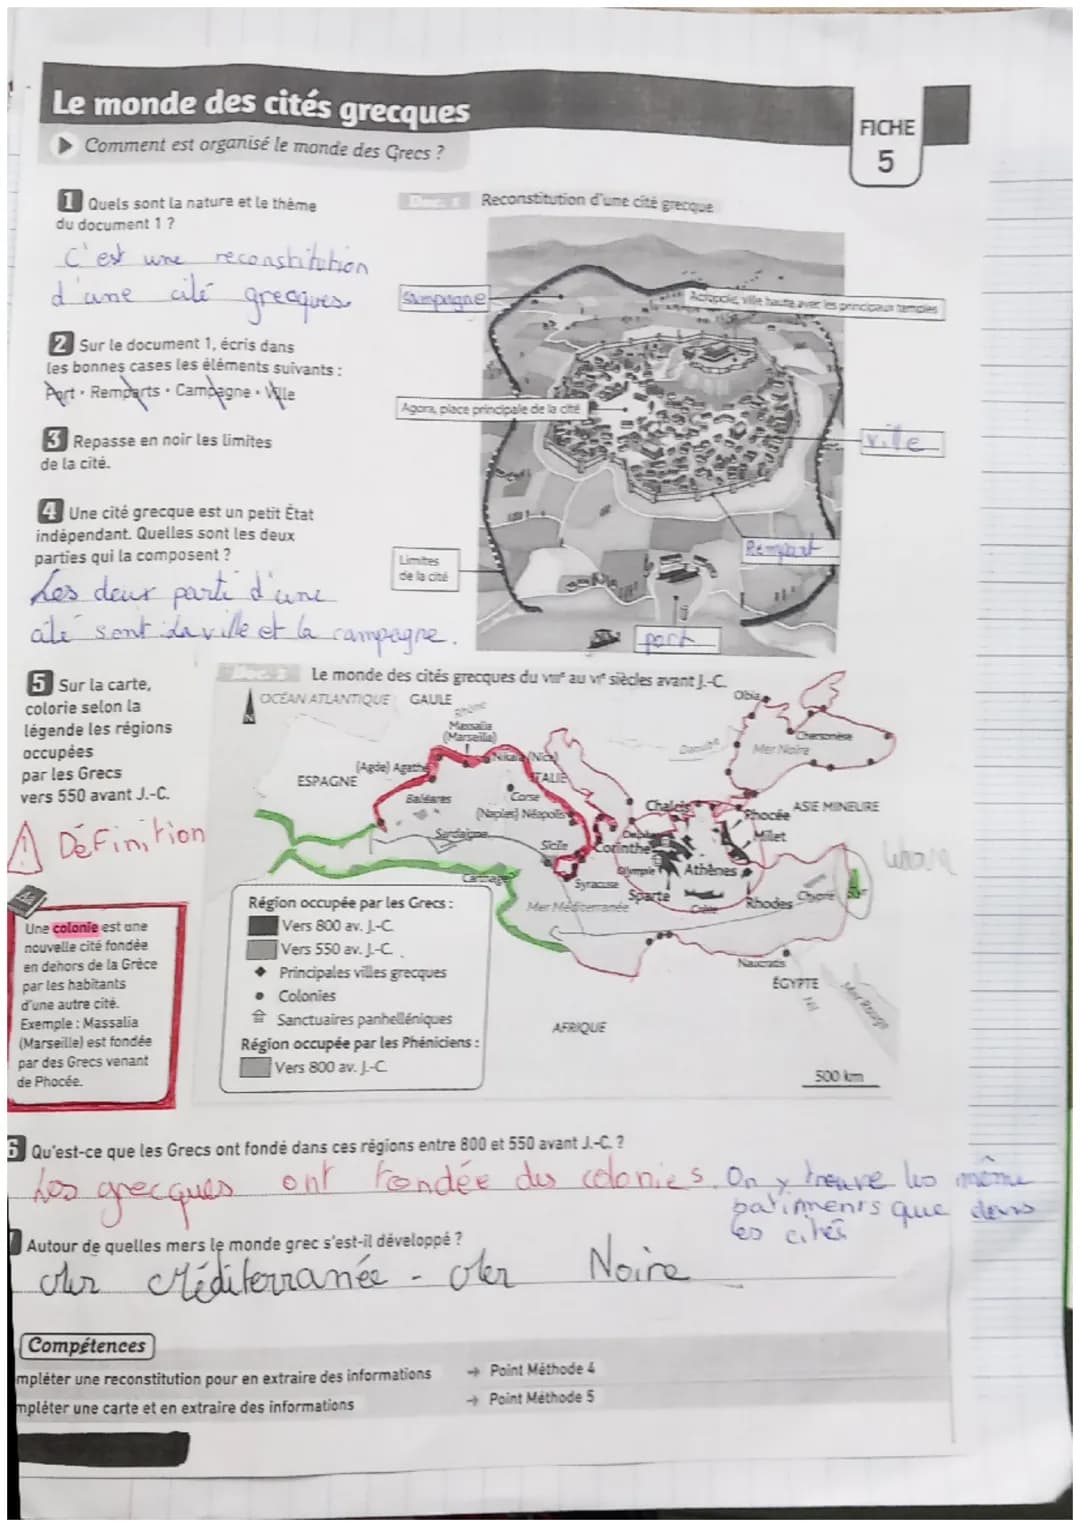 Le monde des cités grecques
Comment est organisé le monde des Grecs ?
FICHE
5
1 Quels sont la nature et le thème
du document 1 ?
C'est une reconstitution
d'une cité grecques
2 Sur le document 1, écris dans
les bonnes cases les éléments suivants :
Port · Remparts · Campagne · Ville
3 Repasse en noir les limites
de la cité.
4 Une cité grecque est un petit État
indépendant. Quelles sont les deux
parties qui la composent ?
Les deux parti d'une
cité sont la ville et la campagne.
Doc. 1 Reconstitution d'une cité grecque
Campagne
Acropole, ville haute avec les principaux temples
Agora, place principale de la cité
ville
Rempart
Limites
de la cité
port
5 Sur la carte,
colorie selon la
légende les régions
occupées
par les Grecs
vers 550 avant J.-C.
Définition
Une colonie est une
nouvelle cité fondée
en dehors de la Grèce
par les habitants
d'une autre cité.
Exemple : Massalia
(Marseille) est fondée
par des Grecs venant
de Phocée.
Doc. 2 Le monde des cités grecques du VIIIe au VIe siècles avant J.-C.
N
OCÉAN ATLANTIQUE
GAULE
Rhône
Massalia
(Marseille)
Olbia
Danube
Mer Noire
Chersonèse
(Agde) Agathé
Nikaia (Nice)
ESPAGNE
ITALIE
Baléares
Corse
(Naples) Néapolis
Chalcis
Phocée
ASIE MINEURE
Sardaigne
Sicile
Corinthe
Delphes
Milet
Olympie
Athènes
Carthage
Syracuse
Sparte
Crète
Rhodes
Chypre
Tyr
Liban
Mer Méditerranée
Naucratis
ÉGYPTE
Nil
Mer Rouge
AFRIQUE
500 km
Région occupée par les Grecs :
Vers 800 av. J.-C.
Vers 550 av. J.-C.
Principales villes grecques
Colonies
Sanctuaires panhelléniques
Région occupée par les Phéniciens :
Vers 800 av. J.-C.
6 Qu'est-ce que les Grecs ont fondé dans ces régions entre 800 et 550 avant J.-C. ?
Les grecques ont fondée des colonies. On y trouve les même
batiments que dans
les cités
Autour de quelles mers le monde grec s'est-il développé ?
Mer Méditerranée - Mer Noire
Compétences
mpléter une reconstitution pour en extraire des informations → Point Méthode 4
mpléter une carte et en extraire des informations → Point Méthode 5